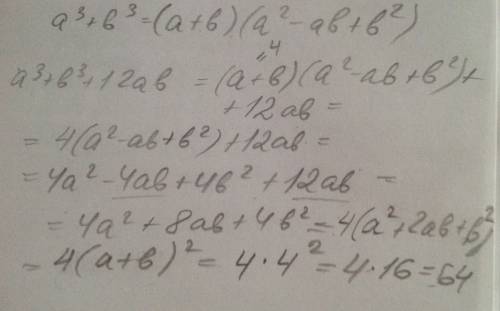 a³+b³=(a+b)(a²-ab+b²)
"4
a³+b³+12ab =(a+b)(a²-ab+b²)+
+12ab=
=4(a²-ab+b²)+12ab=
=4a²-4ab+4b²+12ab=
=4a²+8ab+4b²=4(a²+2ab+b²)
=4(a+b)²=4·4²=4·16=64